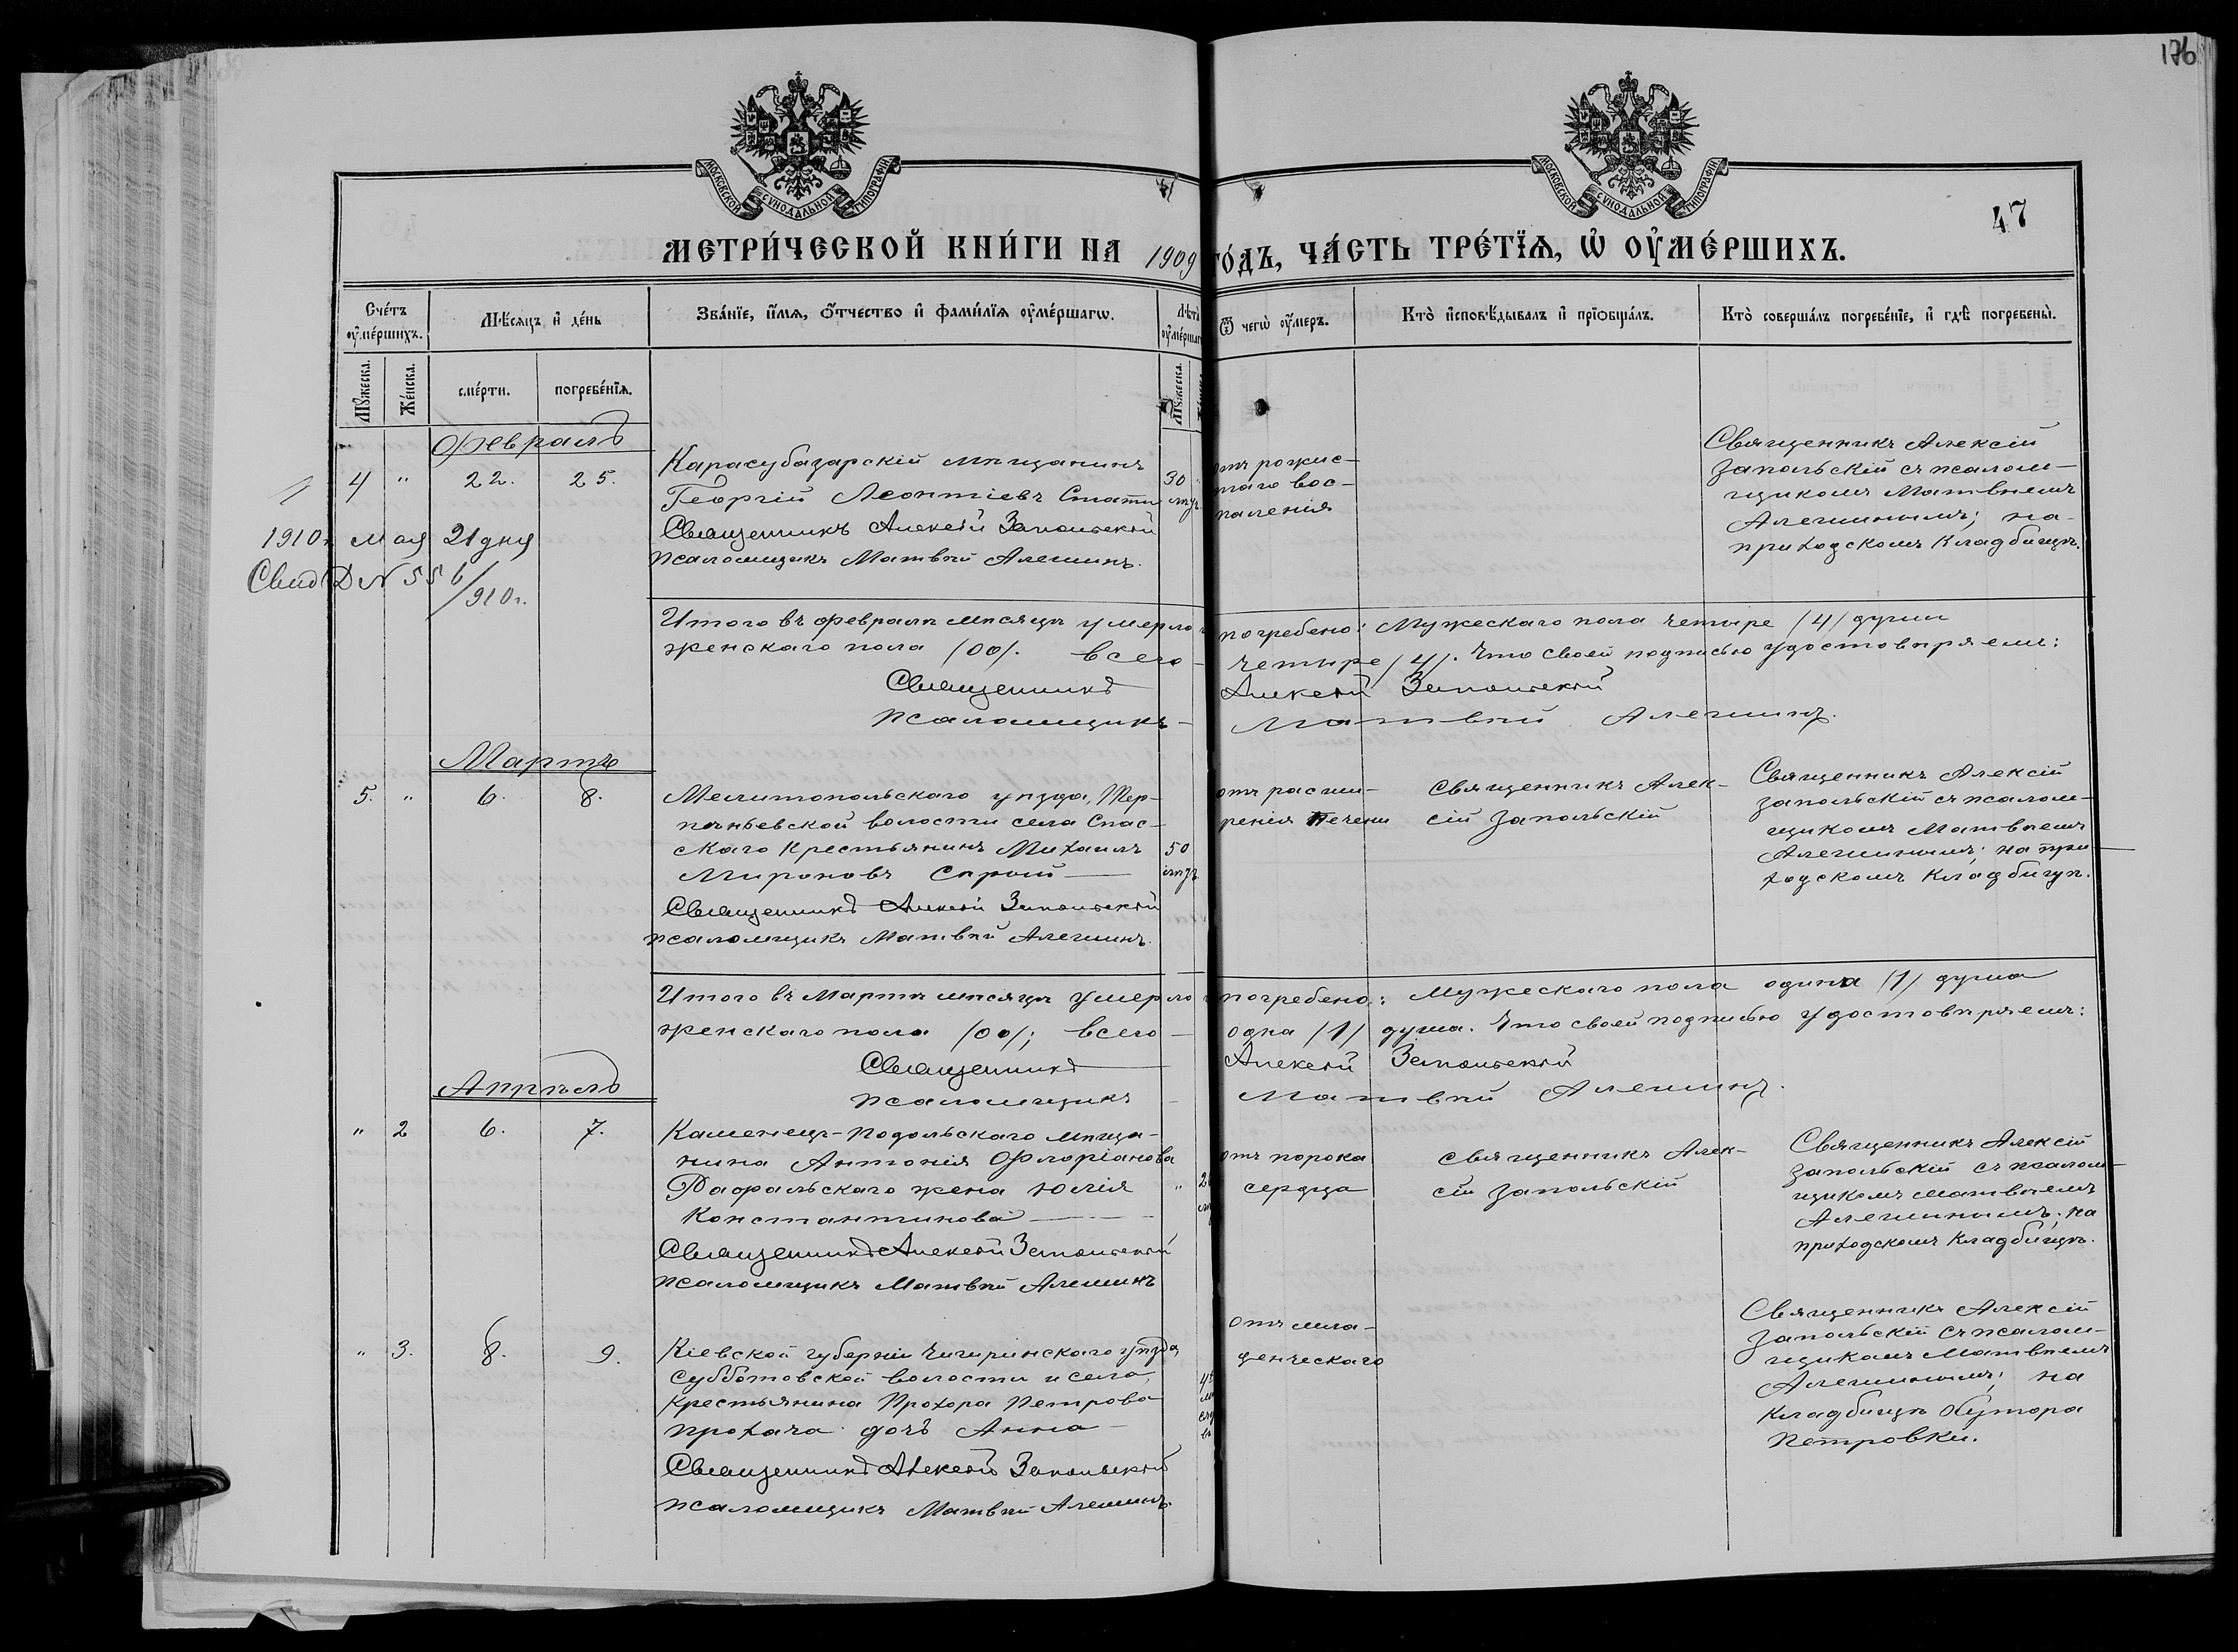 176
47
МОСКОВСКОЙ СѴНОДАЛЬНОЙ ТИПОГРАФІИ
МОСКОВСКОЙ СѴНОДАЛЬНОЙ ТИПОГРАФІИ
МЕТРИ́ЧЕСКОЙ КНИ́ГИ НА 1909 ГО́ДЪ, ЧА́СТЬ ТРЕ́ТЇѦ, Ѡ҆ ОУ҆МЕ́РШИХЪ.
Сче́тъ оу҆ме́ршихъ.
Мѣ́сѧцъ и҆ де́нь
Зва́нїе, и҆́мѧ, ѻ҆́тчество и҆ фами́лїѧ оу҆ме́ршагѡ.
Лѣ́та оу҆ме́ршаг
Ѿ чегѡ̀ оу҆́меръ.
Кто̀ и҆сповѣ́дывалъ и҆ прїѡбща́лъ.
Кто̀ соверша́лъ погребе́нїе, и҆ гдѣ̀ погребены̀.
Мꙋ́жеска.
Же́нска.
сме́рти.
погребе́нїѧ.
Мꙋ́жеска.
Февраль
4 " 22. 25.
Карасубазарскій мѣщанинъ
Георгій Леонтіевъ Стати
Священникъ Алексѣй Запольскій
Псаломщикъ Матвѣй Алешинъ.
30
отъ рожис-
таго вос-
паленія
Священникъ Алексій
Запольскій съ псалом-
щикомъ Матвѣемъ
Алешинымъ; на
приходскомъ кладбищѣ.
1910 г. мая 21 дня
Свид Д N 556
/910 г.
Итого въ февралѣ мѣсяцѣ умерло погребено: Мужескаго пола четыре /4/ души
женскаго пола /00/. всего - четыре /4/. Что своей подписью удостовѣряемъ:
Священникъ Алексѣй Запольскій
псаломщикъ - Матвѣй Алешинъ.
Мартъ
5. " 6. 8.
Мелитопольскаго уѣзда, Тер-
пѣньевской волости села Спас-
скаго крестьянинъ Михаилъ
Мироновъ Сѣрый
Священникъ Алексѣй Запольскій
псаломщикъ Матвѣй Алешинъ.
50
отъ расши-
ренія печени
Священникъ Алек-
сій Запольскій
Священникъ Алексій
Запольскій съ псалом-
щикомъ Матвѣемъ
Алешинымъ; на при-
ходскомъ кладбищѣ.
Итого въ Мартѣ мѣсяцѣ умерло погребено: Мужескаго пола одина /1/ душа
женскаго пола /00/; всего - одна /1/ душа. Что своей подписью удостовѣряемъ:
Священникъ Алексѣй Запольскій
псаломщикъ - Матвѣй Алешинъ.
Апрѣль
" 2 6. 7.
Каменецъ-Подольскаго мѣща-
нина Антонія Флоріанова
Рафальскаго жена Юлія
Константинова
Священникъ Алексѣй Запольскій
псаломщикъ Матвѣй Алешинъ
"
отъ порока
сердца
Священникъ Алек-
сій Запольскій
Священникъ Алексій
Запольскій съ псалом-
щикомъ Матвѣемъ
Алешинымъ; на
приходскомъ кладбищѣ.
" 3. 8. 9.
Кіевской губерніи Чигиринскаго уѣзда,
Субботовской волости и села,
крестьянина Прохора Петрова
Прохача дочь Анна
Священникъ Алексѣй Запольскій
псаломщикъ Матвѣй Алешинъ.
отъ мла-
денческаго
Священникъ Алексій
Запольскій съ псалом-
щикомъ Матвѣемъ
Алешинымъ; на
кладбищѣ хутора
Петровки.